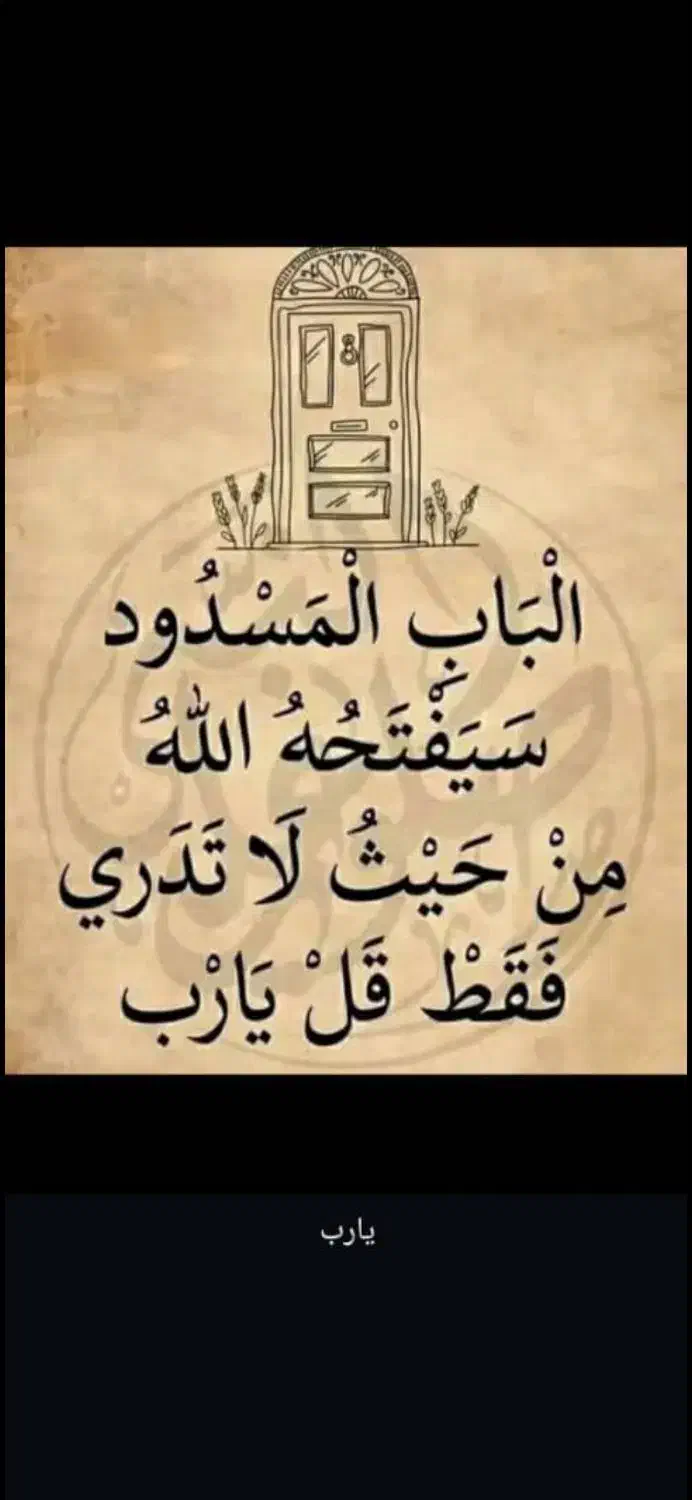 الْبَابِ الْمَسْدُود
سَيَفْتَحُهُ اللهُ
مِنْ حَيْثُ لَا تَدَري
فَقَطْ قَلْ يَارْب
يارب